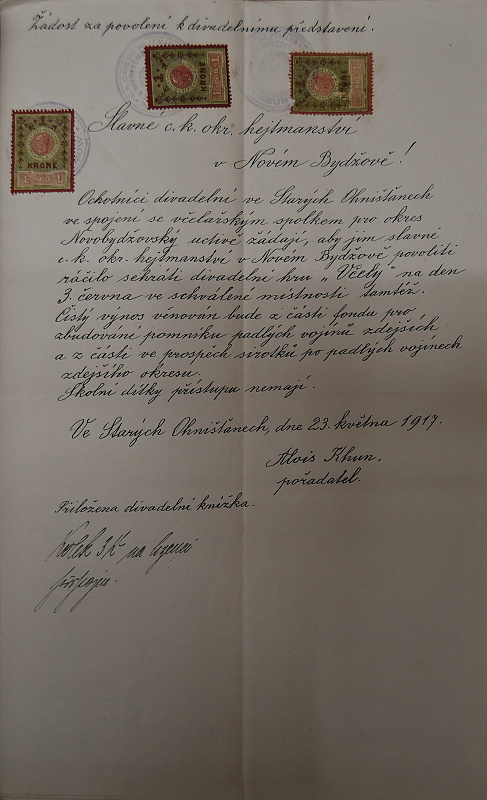 Žádost za povolení k divadelnímu představení.
1
KRONE
1
KRONE
1
KRONE
Slavné c. k. okr. hejtmanství
v Novém Bydžově!
Ochotníci divadelní ve Starých Ohništanech
ve spojení se včelařským spolkem pro okres
Novobydžovský uctivě žádají, aby jim slavné
c. k. okr. hejtmanství v Novém Bydžově povoliti
ráčilo sehráti divadelní hru „Včely" na den
3. června ve schválené místnosti tamtéž.
Čistý výnos věnován bude z části fondu pro
zbudování pomníku padlých vojínů zdejších
a z části ve prospěch sirotků po padlých vojínech
zdejšího okresu.
Školní dítky přístupu nemají.
Ve Starých Ohništanech, dne 23. května 1917.
Alois Khun.
pořadatel.
Přiložena divadelní knížka.
Kolek 3 K na licenci
připojen.